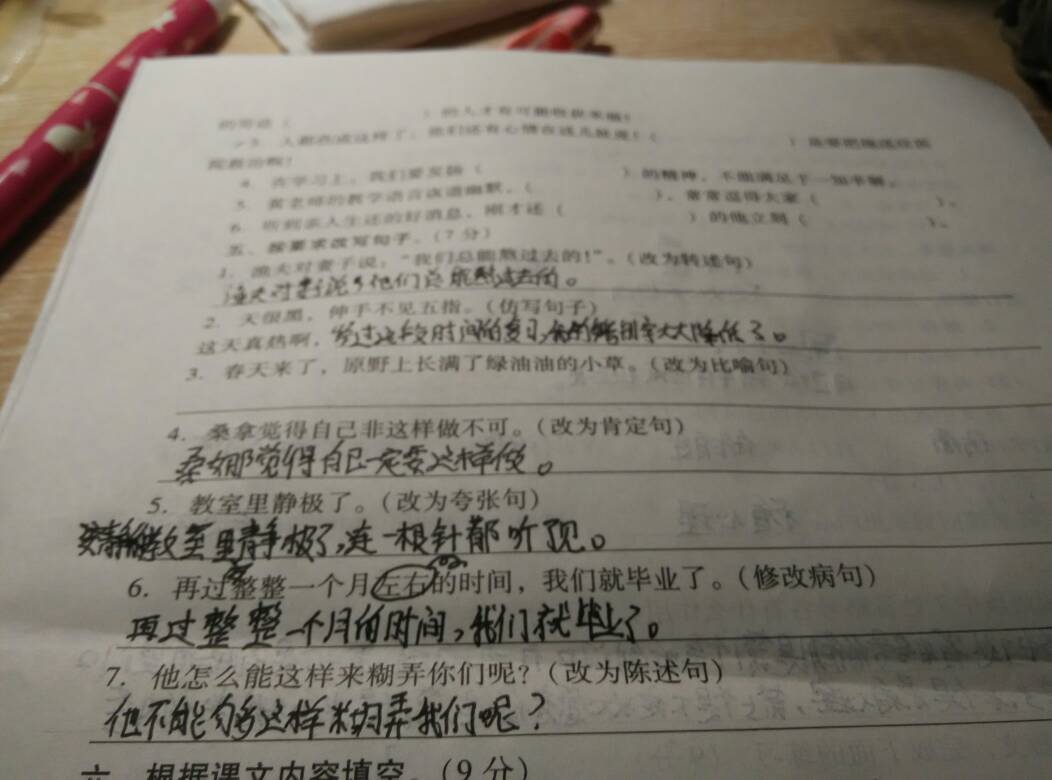 的奇迹（　　　　）的人才有可能
3. 人都伤成这样了，他们还有心情在这儿（　　　　）
4. 在学习上，我们要发扬（　　　　）的精神，不能满足于一知半解。
5. 黄老师的教学语言诙谐幽默，（　　　　），常常逗得大家（　　　　）。
6. 听到亲人生还的好消息，刚才还（　　　　）的他立刻（　　　　）。
五、按要求改写句子。（7分）
1. 渔夫对妻子说：“我们总能熬过去的！”。（改为转述句）
渔夫对妻子说，他们总能熬过去的。
2. 天很黑，伸手不见五指。（仿写句子）
这天真热啊，经过这段时间的复习，我的错误率大大降低了。
3. 春天来了，原野上长满了绿油油的小草。（改为比喻句）
4. 桑拿觉得自己非这样做不可。（改为肯定句）
桑娜觉得自己一定要这样做。
5. 教室里静极了。（改为夸张句）
教室里静极了，连一根针都听见。
6. 再过整整一个月左右的时间，我们就毕业了。（修改病句）
再过整整一个月的时间，我们就毕业了。
7. 他怎么能这样来糊弄你们呢？（改为陈述句）
他不能够这样来糊弄我们呢？
六、根据课文内容填空。（9分）